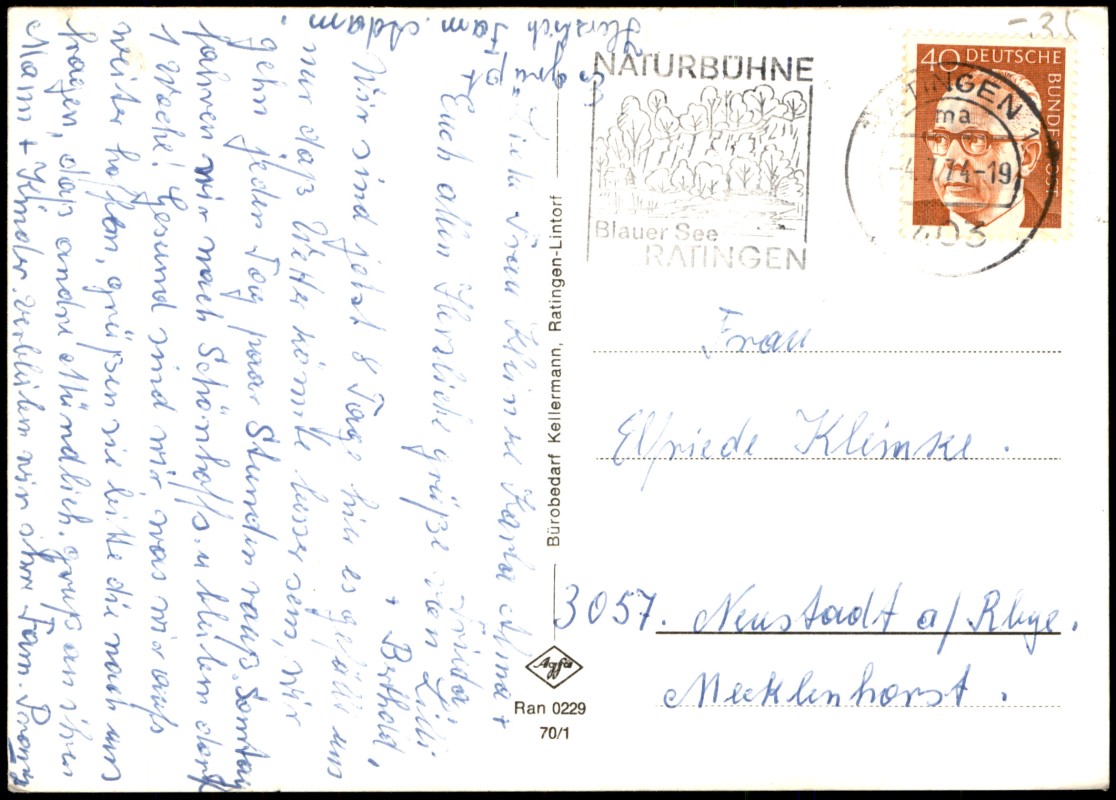 -.35
NATURBÜHNE
Blauer See
RATINGEN
40 DEUTSCHE
BUNDESPOST
RATINGEN 1
ma
-4.7.74-19
403
Frau
Elfriede Klimske.
3057. Neustadt a/ Rbge.
Mecklenhorst.
Bürobedarf Kellermann, Ratingen-Lintorf
Agfa
Ran 0229
70/1
Liebe Frau Klimske Karla +
Euch allen Herzliche grüße von Lilli
+ Berthold,
Wir sind jetzt 8 Tage hier es gefällt uns
nur daß Wetter könnte besser sein, wir
gehn jeden Tag paar Stunden raus. Samtag
fahren wir nach Schönhoff. u bleiben dort
1 Woche! Gesund sind wir was wir auch
weiter hoffen, grüßen sie bitte die nach uns
fragen, das andre Mündlich. gruß an ihren
Mann + Kinder. verbleiben wir ihre Fam.
Es grüßt
Herzlich Fam. Adam.